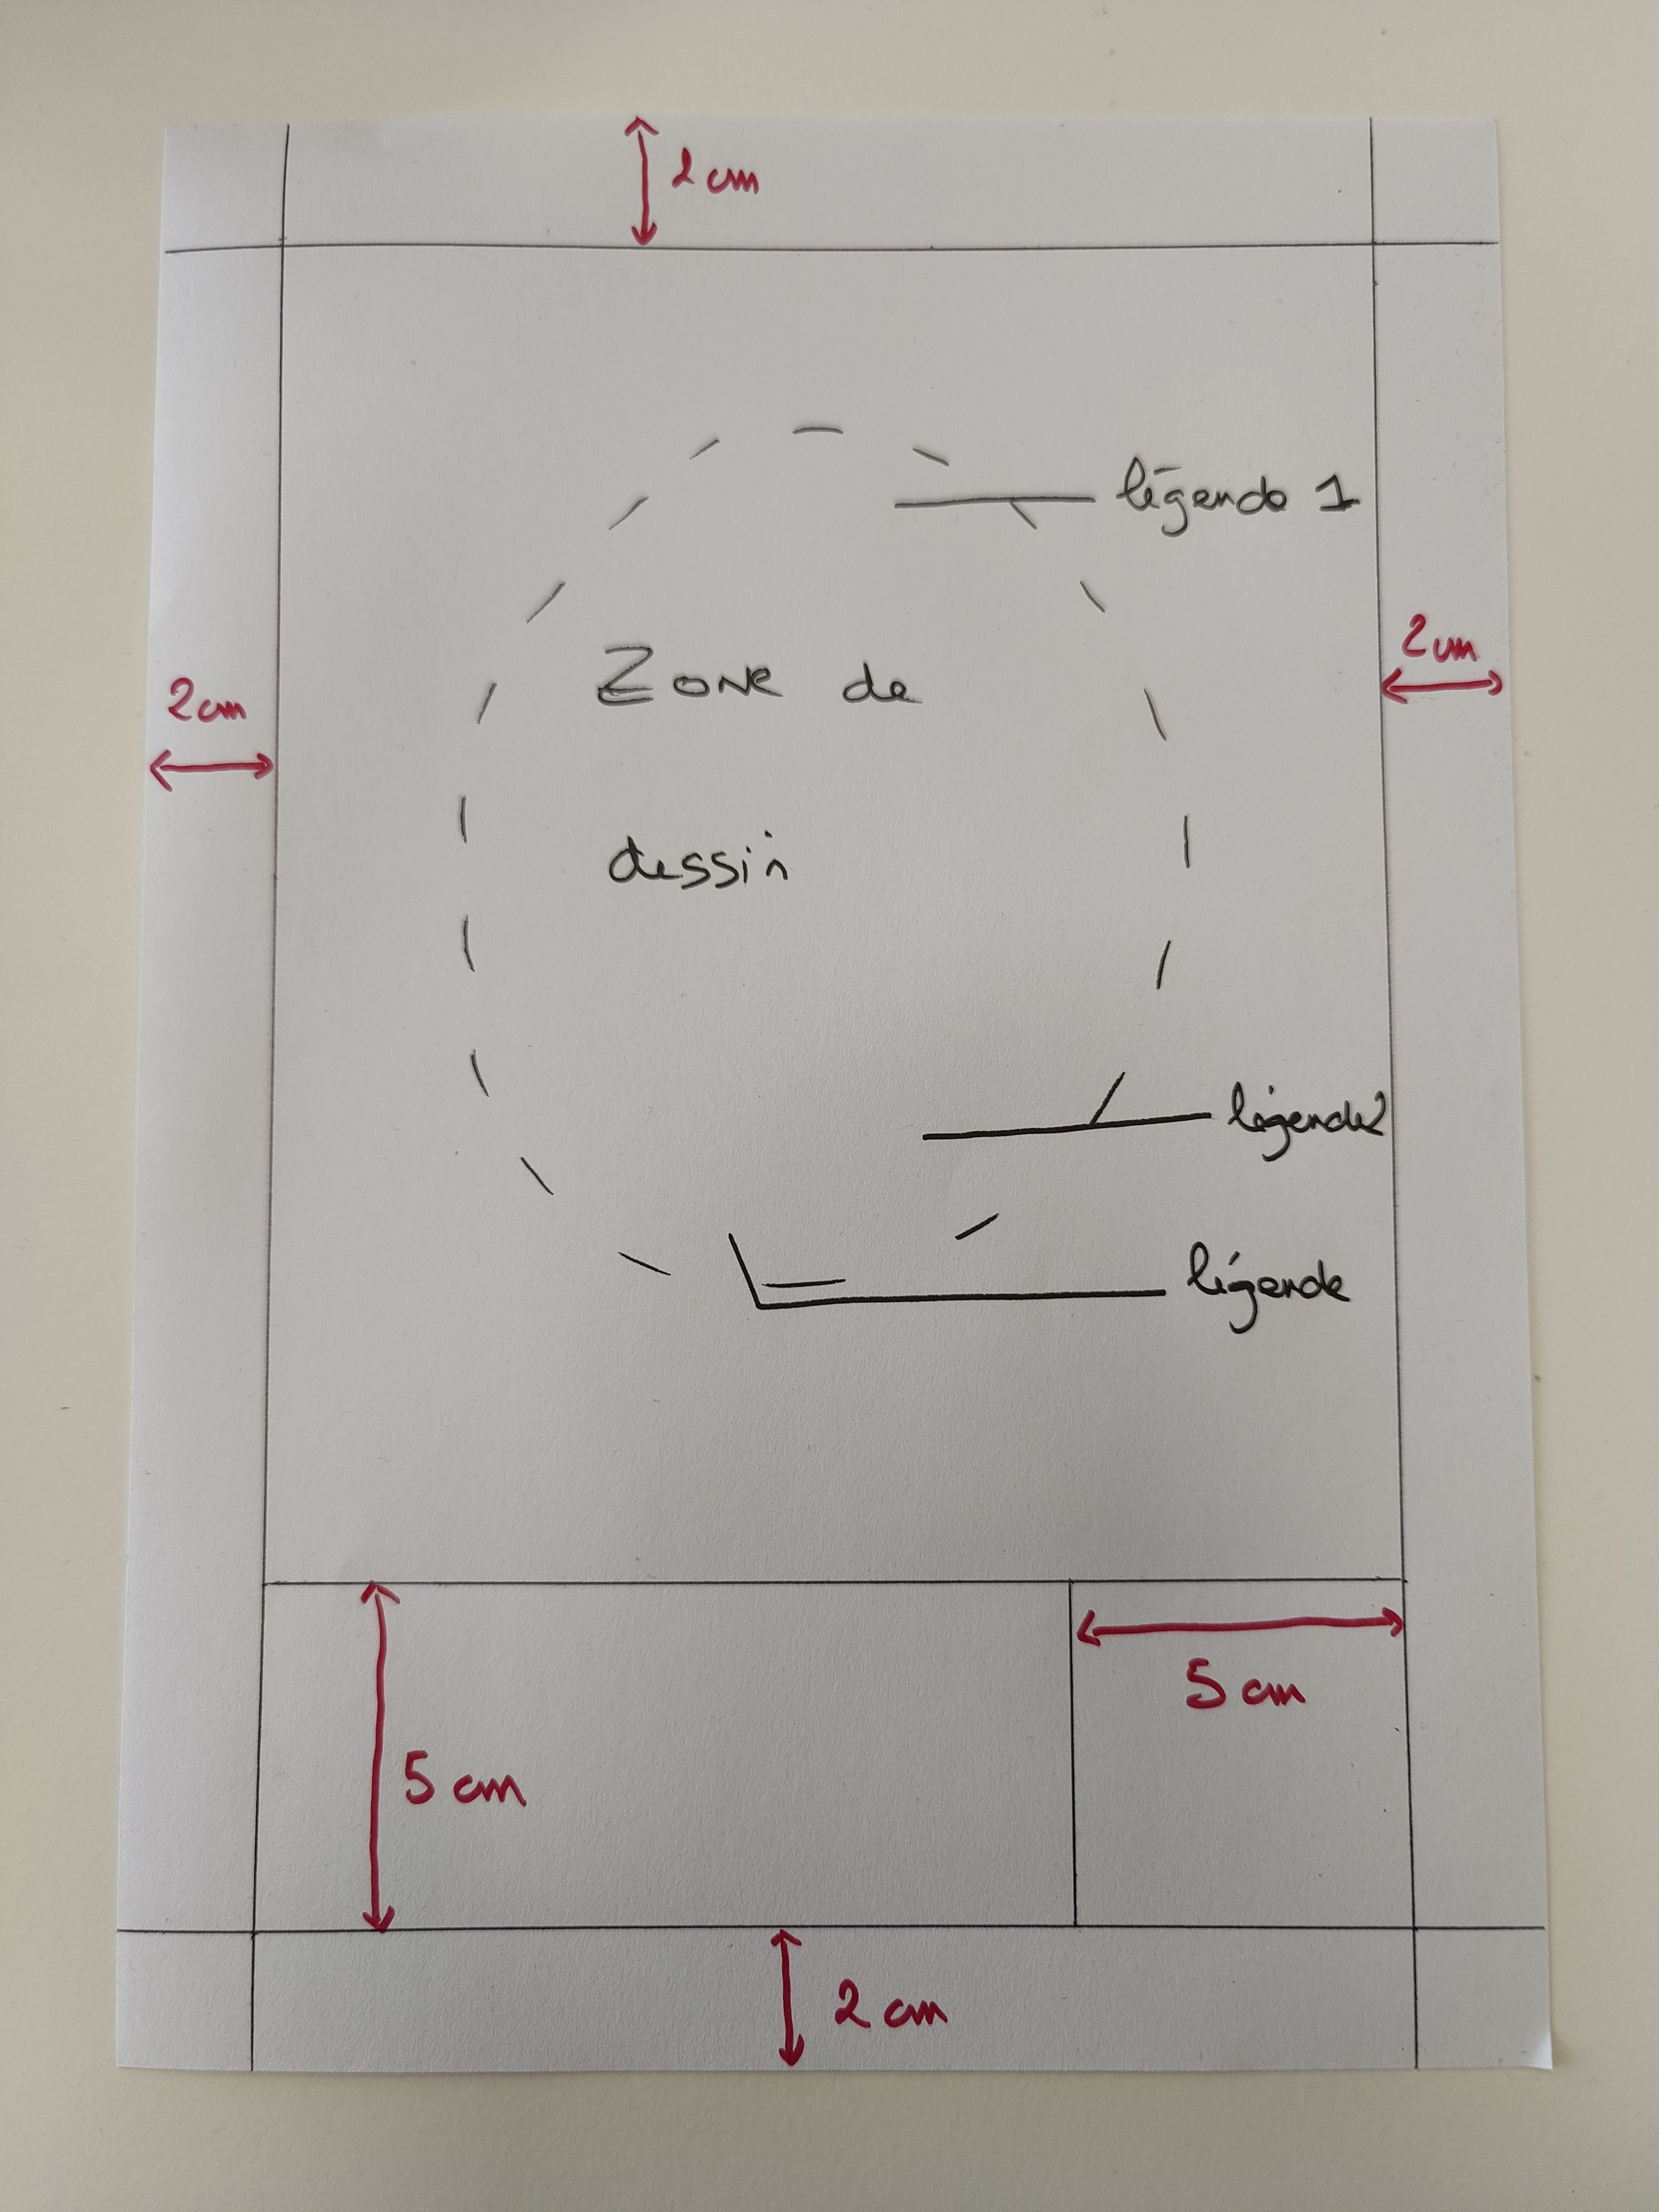 2 cm
légende 1
2 cm
Zone de
2 cm
dessin
légende 2
légende
5 cm
5 cm
2 cm